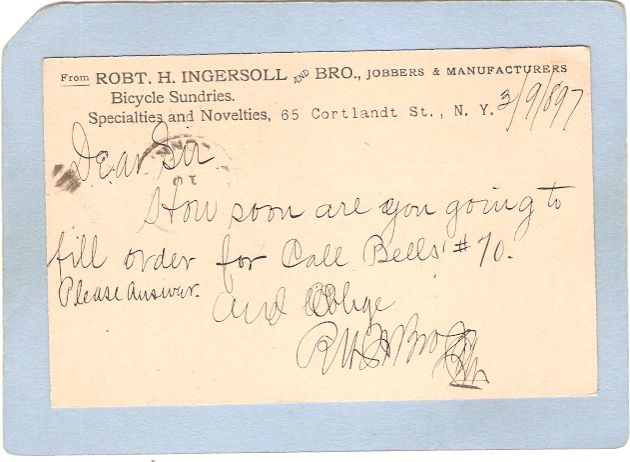 From ROBT. H. INGERSOLL AND BRO., JOBBERS & MANUFACTURERS
Bicycle Sundries.
Specialties and Novelties, 65 Cortlandt St., N. Y. 3/9/897
Dear Sir
How soon are you going to
fill order for Call Bells #70.
Please answer.
and Oblige
R H I & Bro